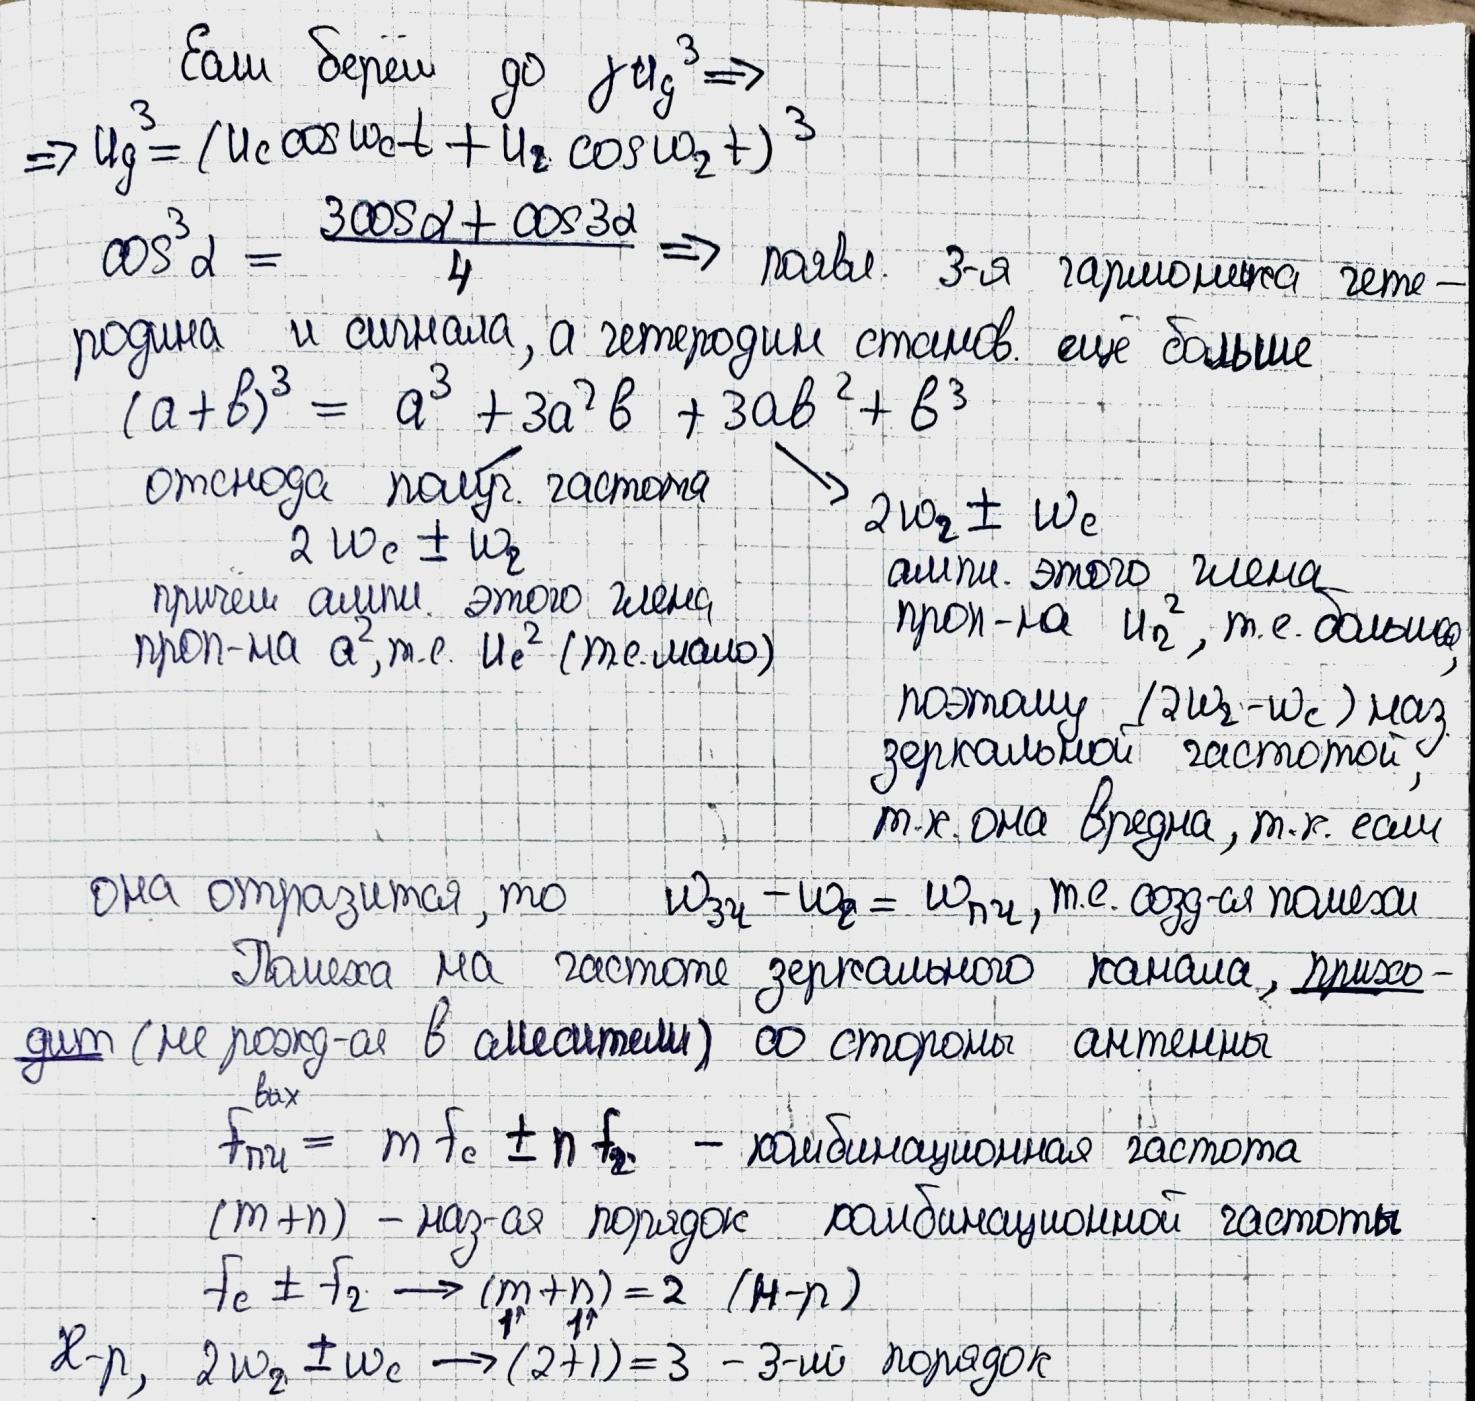 Если берём до γu_g³ ⇒
⇒ u_g³ = (u_c cosω_ct + u_г cosω_гt)³
cos³α = (3cosα + cos3α)/4 ⇒ появл. 3-я гармоника гете-
родина и сигнала, а гетеродин станов. ещё больше
(a+b)³ = a³ + 3a²b + 3ab² + b³
отсюда получ. частота
2ω_c ± ω_г
причём ампл. этого члена
проп-на a², т.е. u_c² (т.е. мало)
2ω_г ± ω_c
ампл. этого члена
проп-на u_г², т.е. большая,
поэтому (2ω_г - ω_c) наз.
зеркальной частотой,
т.к. она вредна, т.к. если
она отразится, то ω_зч - ω_г = ω_пч, т.е. созд-ся помехи
Помеха на частоте зеркального канала, прихо-
дит (не рожд-ся в смесители) со стороны антенны
f_пч^вых = m f_c ± n f_г - комбинационная частота
(m+n) - наз-ся порядок комбинационной частоты
f_c ± f_г → (m+n) = 2 (н-р)
1↑ 1↑
Н-р, 2ω_г ± ω_c → (2+1) = 3 - 3-ий порядок